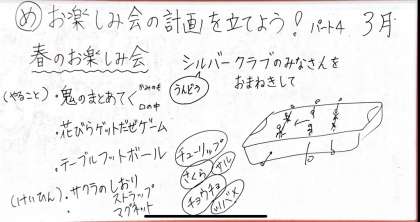 め お楽しみ会の計画を立てよう! パート4 3月
春のお楽しみ会
シルバークラブのみなさんを
おまねきして
(やること)・鬼のまとあてく かみのも 口の中 うんどう
・花びらゲットだぜゲーム
・テーブルフットボール
チューリップ
さくら サル
チョウチョ
ツバメ
(けいひん)・サクラのしおり
ストラップ
・マグネット